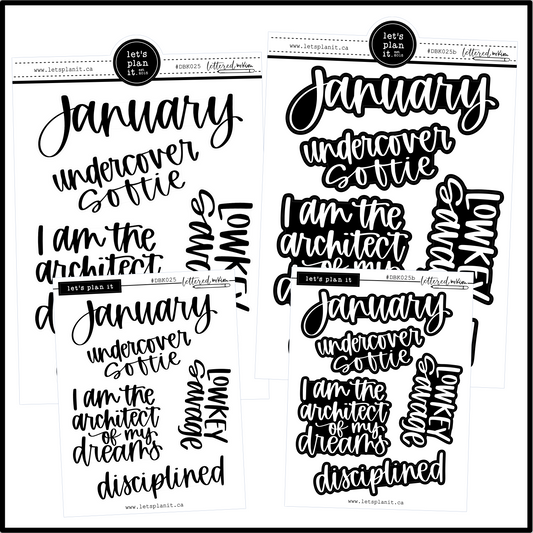 let's
plan
it.
EST. 2015
www.letsplanit.ca
#DBK025
lettered.mvkim
January
undercover
softie
I am the
architect
LOWKEY
let's
plan
it.
EST. 2015
www.letsplanit.ca
#DBK025b
lettered.mvkim
January
undercover
softie
I am the
architect
of my
LOWKEY
Savage
let's plan it
#DBK025
lettered.mvkim
January
undercover
softie
I am the
architect
of my
dreams
LOWKEY
Savage
disciplined
www.letsplanit.ca
let's plan it
#DBK025b
lettered.mvkim
January
undercover
softie
I am the
architect
of my
dreams
LOWKEY
Savage
disciplined
www.letsplanit.ca